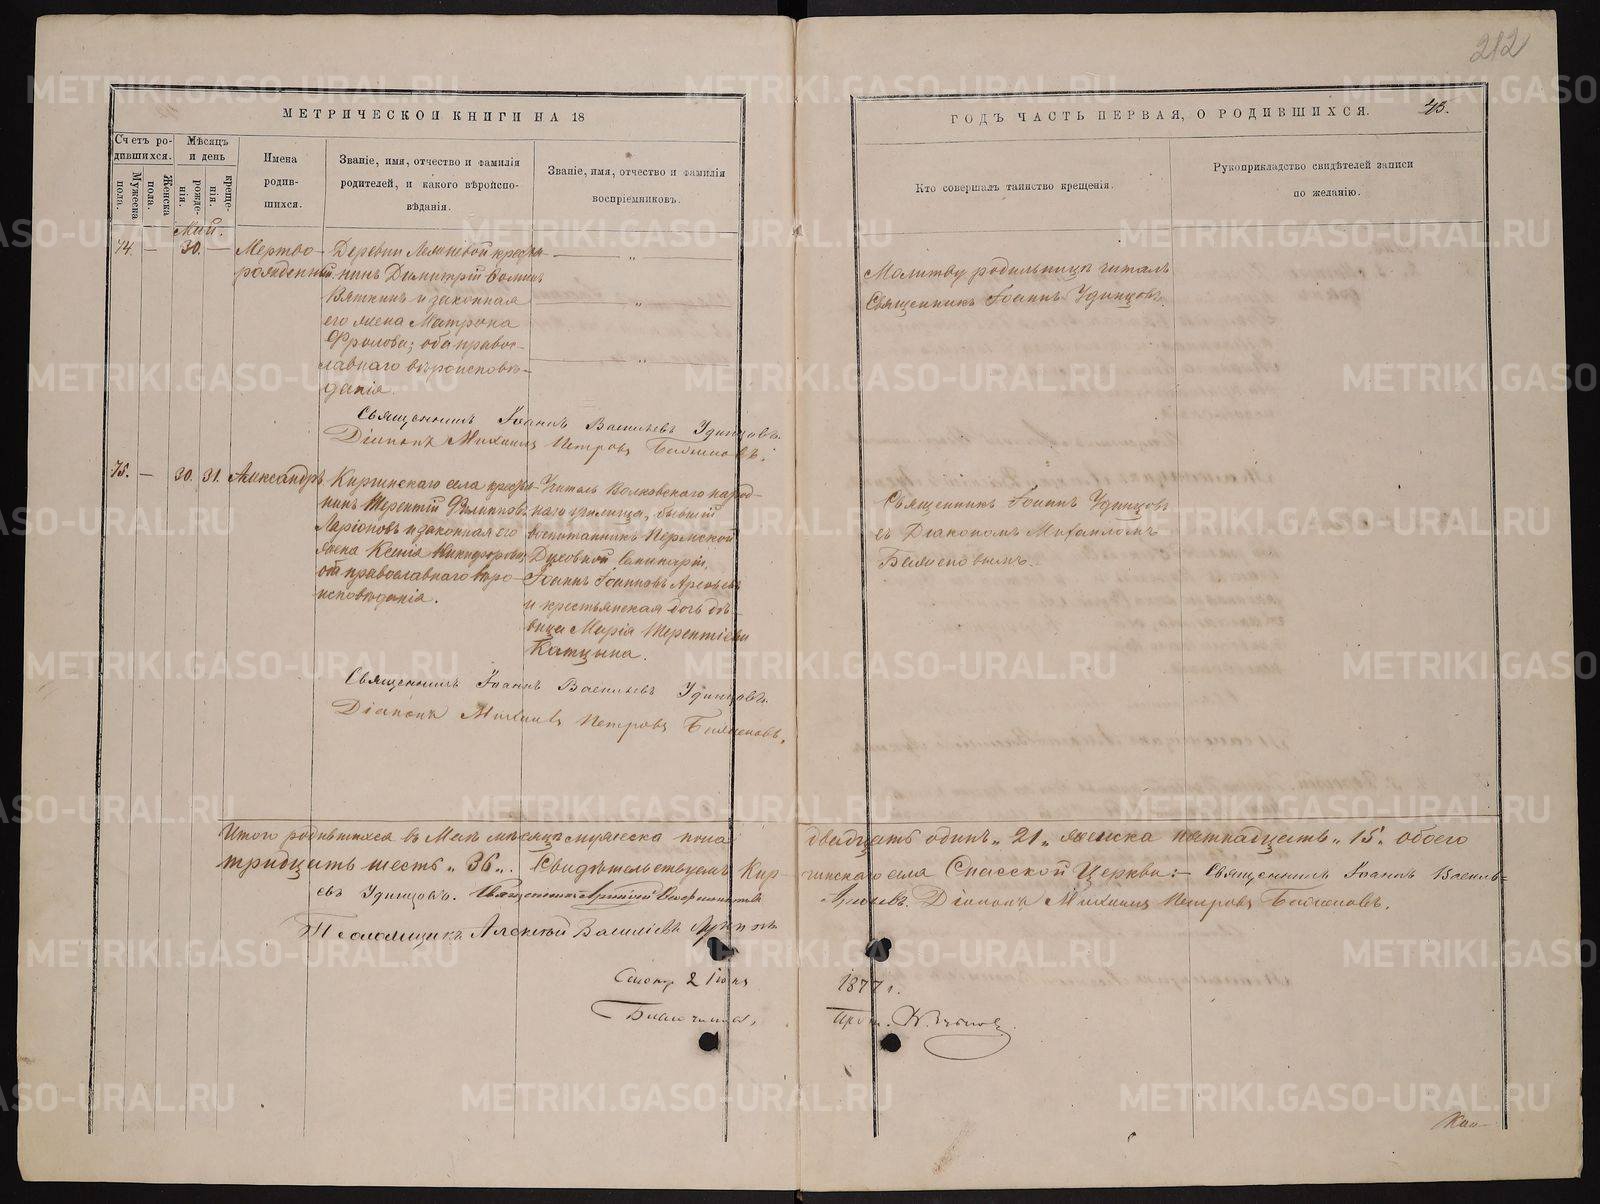 212
МЕТРИЧЕСКОЙ КНИГИ НА 18
ГОДЪ ЧАСТЬ ПЕРВАЯ, О РОДИВШИХСЯ.
43.
Счетъ ро-
дившихся.
Мужеска
пола.
Женска
пола.
Мѣсяцъ
и день
рожде-
нія.
креще-
нія.
Имена
родив-
шихся.
Званіе, имя, отчество и фамилія
родителей, и какого вѣроиспо-
вѣданія.
Званіе, имя, отчество и фамилія
воспріемниковъ.
Кто совершалъ таинство крещенія.
Рукоприкладство свидѣтелей записи
по желанію.
Май.
74. — 30. —
Мертво-
рожденный
Деревни кресть-
нинъ Димитрій
Вяткинъ и законная
его жена Матрона
Фролова; оба правос-
лавнаго вѣроисповѣ-
данія.
Молитву родильницѣ читалъ
Священникъ Іоаннъ Удинцовъ.
Священникъ Іоаннъ Васильевъ Удинцовъ.
Діаконъ Михаилъ Петровъ
75. — 30. 31.
Александръ
Киргинскаго села кресть-
нинъ Терентій Филиповъ
Ларіоновъ и законная его
жена Ксенія Никифорова,
оба православнаго вѣро-
исповѣданія.
Учитель Волковскаго народ-
наго училища, бывшій
воспитанникъ Пермской
Духовной Семинаріи,
Іоаннъ Іоанновъ
и крестьянская дочь дѣ-
вица Марія Терентіева
Катцына.
Священникъ Іоаннъ Удинцовъ
съ Діакономъ Михаиломъ
Священникъ Іоаннъ Васильевъ Удинцовъ.
Діаконъ Михаилъ Петровъ
Итого родившихся въ Маѣ мѣсяцѣ мужеска пола двадцать одинъ „21„ женска пятнадцать „15„ обоего
тридцать шесть „36„. Свидѣтельствуемъ Кир-гинскаго села Спасской Церкви:— Священникъ Іоаннъ Василь-
евъ Удинцовъ. Священникъ Діаконъ Михаилъ Петровъ
Псаломщикъ Алексѣй Василіевъ
2 Іюня 1877 г.
Благочинный,